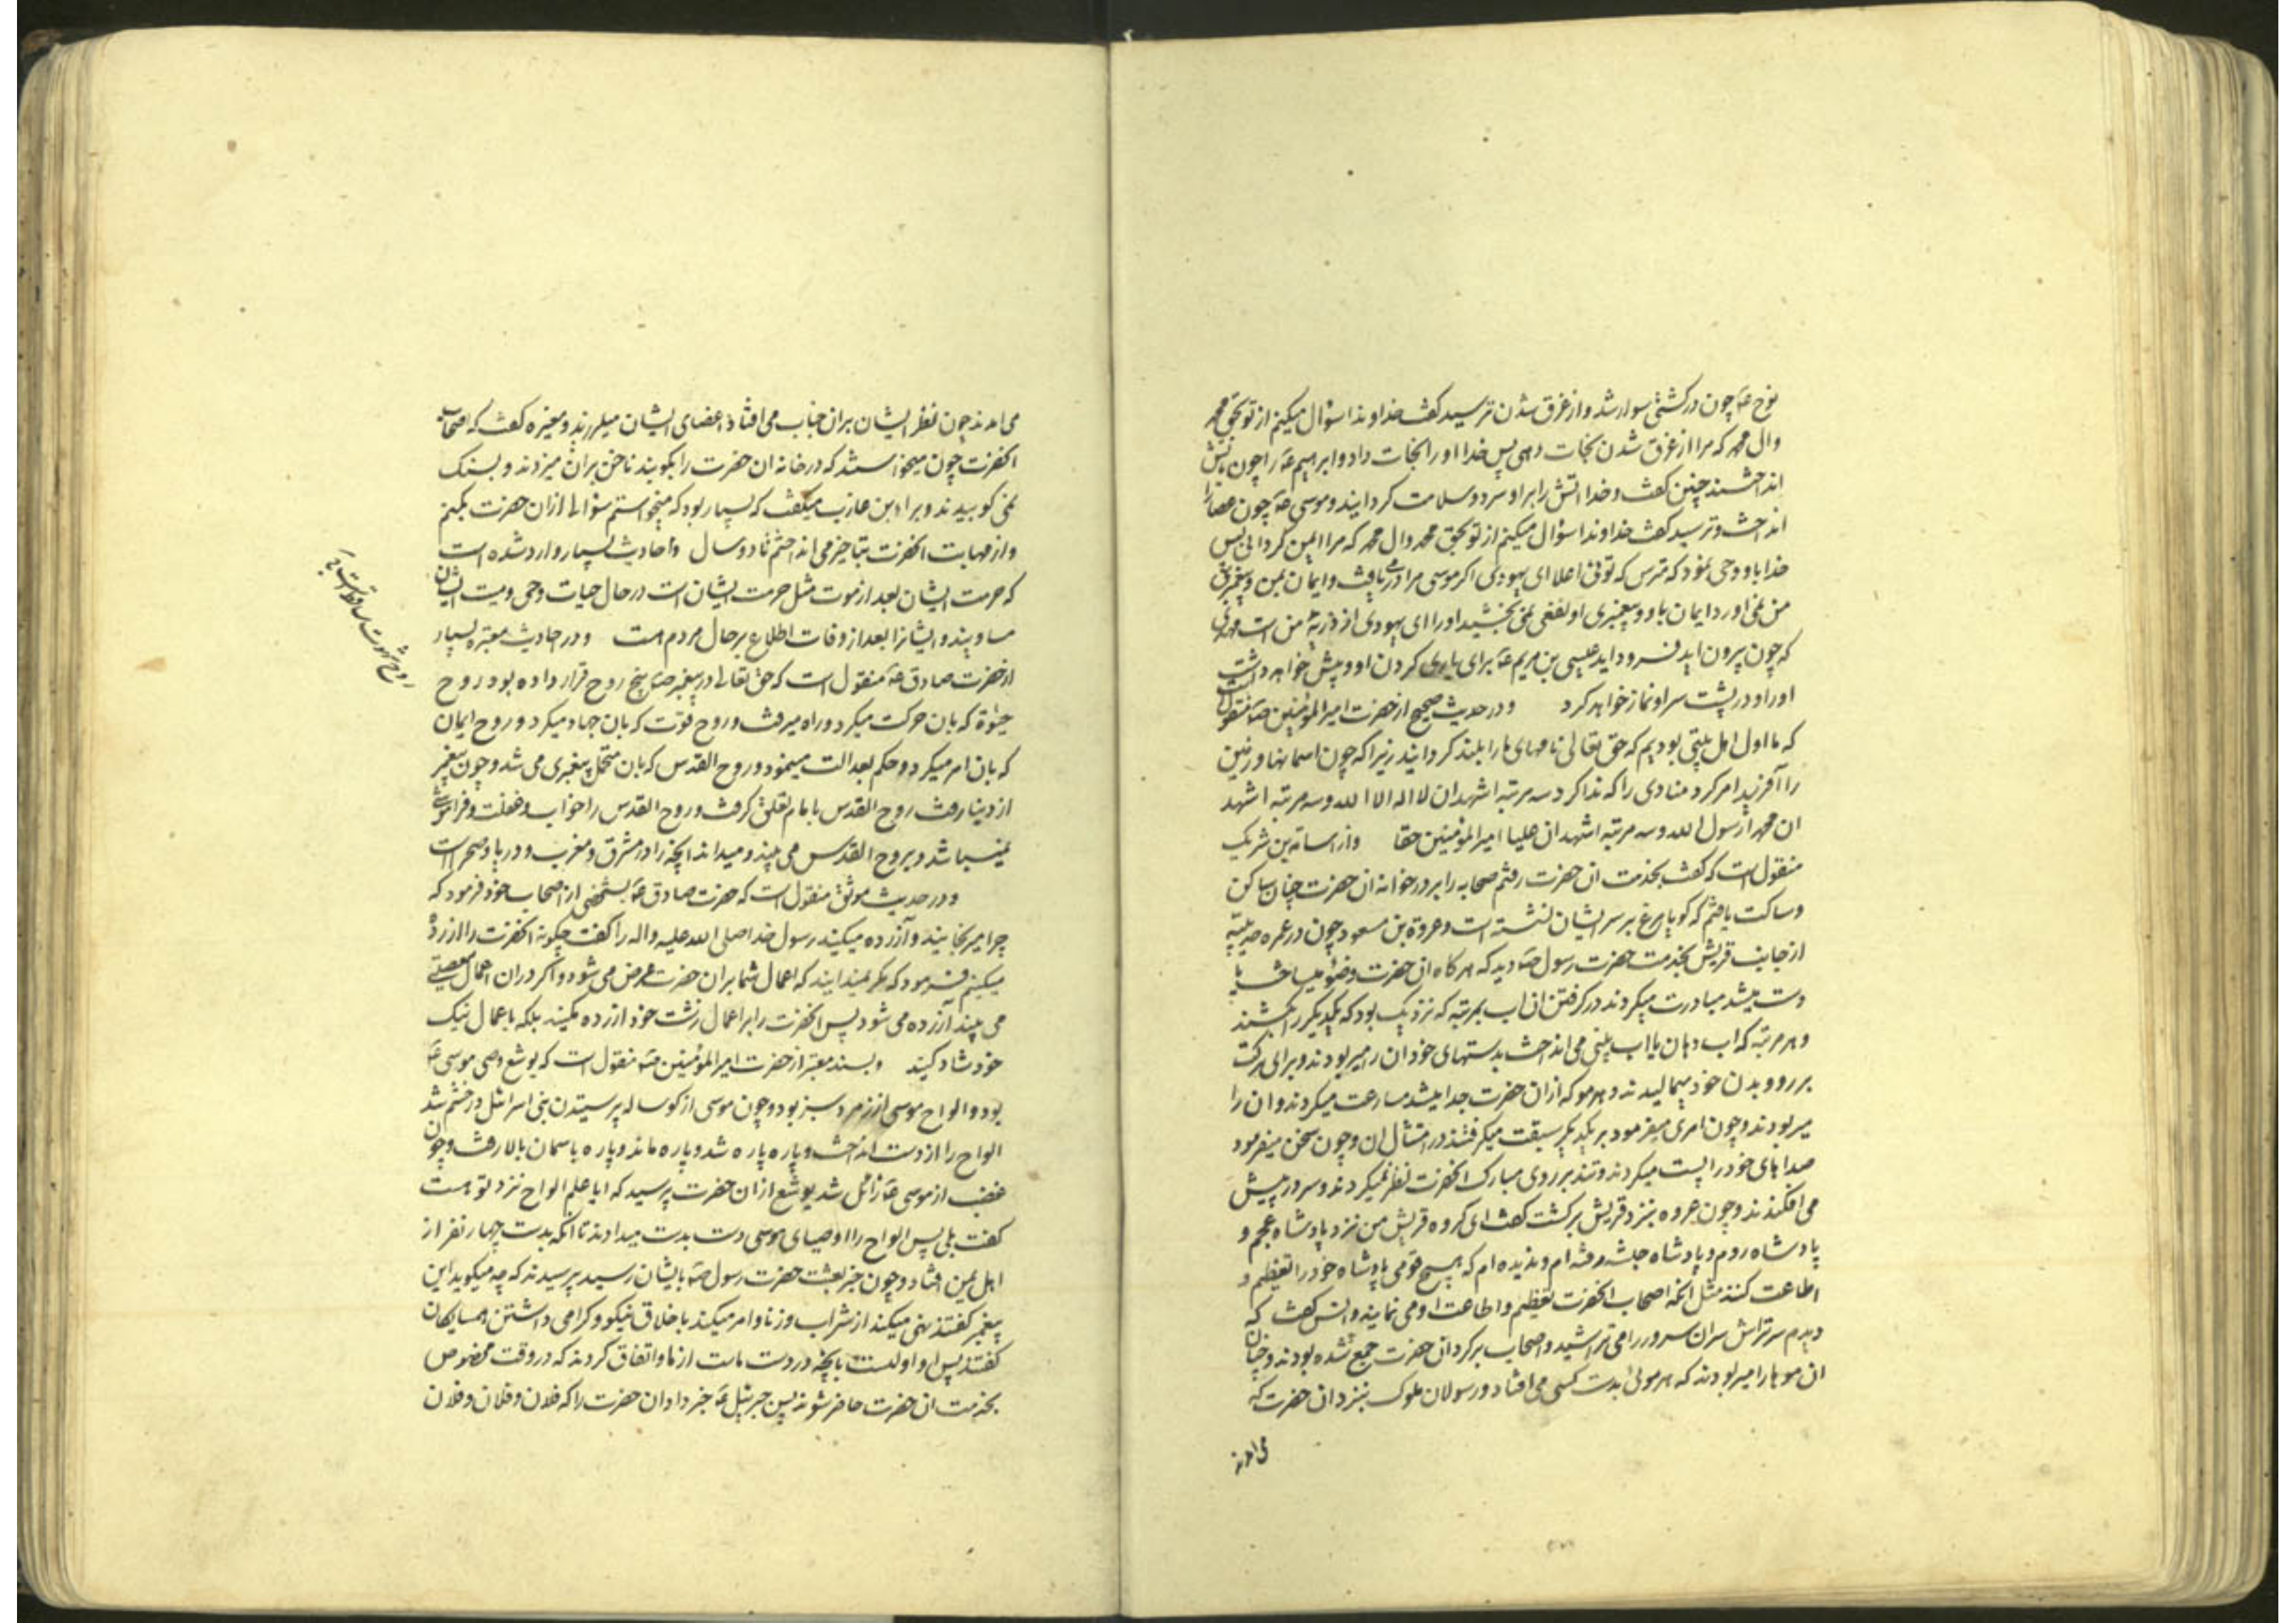 نوح ع چون در کشتی سوار شد و از غرق شدن ترسید کفت خداوندا سؤال میکنم از تو بحق محمد
وال محمد که مرا از غرق شدن نجات دهی پس خدا او را نجات داد و ابراهیم ع را چون باتش
انداختند چنین کفت و خدا اتش را بر او سرد و سلامت کردانید و موسی ع چون عصا را
انداخت و ترسید کفت خداوندا سؤال میکنم از تو بحق محمد وال محمد که مرا ایمن کردانی پس
خدا باو وحی نمود که مترس که توئی اعلا ای یهودی اکر موسی مرا در می یافت و ایمان بمن و پیغمبری
من نمی اورد ایمان باو و پیغمبری او نفعی نمی بخشید او را ای یهودی از ذریه من است مهدی
که چون بیرون اید فرود اید عیسی بن مریم ع برای یاری کردن او و پیش خواهد داشت
او را و در پشت سر او نماز خواهد کرد و در حدیث صحیح از حضرت امیر المؤمنین ص منقول است
که ما اول اهل بیتی بودیم که حق تعالی نامهای ما را بلند کردانید زیرا که چون اسمانها و زمین
را آفرید امر کرد منادی را که ندا کرد سه مرتبه اشهد ان لا اله الا الله و سه مرتبه اشهد
ان محمدا رسول الله و سه مرتبه اشهد ان علیا امیر المؤمنین حقا و از اسامة بن شریک
منقول است که کفت بخدمت ان حضرت رفتم صحابه را بر دور خوانه ان حضرت چنان ساکن
و ساکت یافتم که کویا مرغ بر سر ایشان نشسته است و عروة بن مسعود چون در عمره حدیبیه
از جانب قریش بخدمت حضرت رسول ص دید که هر کاه ان حضرت وضو میساخت یا
دست میشد مبادرت میکردند در کرفتن ان اب بمرتبه که نزدیک بود که یکدیکر را بکشند
و هر مرتبه که اب دهان یا اب بینی می انداخت بدستهای خود ان را میربودند و برای برکت
بر رو و بدن خود میمالیدند و هر مو که از ان حضرت جدا میشد مسارعت میکردند و ان را
میربودند و چون امری میفرمود بر یکدیکر سبقت میکرفتند در امتثال ان و چون سخن میفرمود
صداهای خود را پست میکردند و تند بر روی مبارک انحضرت نظر نمیکردند و سر در پیش
می افکندند و چون عروه بنزد قریش برکشت کفت ای کروه قریش من نزد پادشاه عجم و
پادشاه روم و پادشاه حبشه رفته ام و ندیده ام که هیچ قومی پادشاه خود را تعظیم و
اطاعت کنند مثل انچه اصحاب انحضرت تعظیم و اطاعت او می نمایند و انس کفت که
دیدم سرتراش سر ان سرور را می تراشید و اصحاب بر کرد ان حضرت جمع شده بودند و چنان
ان موها را میربودند که هر موئی بدست کسی می افتاد و رسولان ملوک بنزد ان حضرت که
می امدند
می امدند چون نظر ایشان بران جناب می افتاد اعضای ایشان میلرزید و مغیره کفت که اصحاب
انحضرت چون میخواستند که در خانه ان حضرت را بکوبند ناخن بران میزدند و بسنک
نمی کوبیدند و براء بن عازب میکفت که بسیار بود که میخواستم سؤالی از ان حضرت بکنم
و از مهابت انحضرت بتاخیر می انداختم تا دو سال و احادیث بسیار وارد شده است
که حرمت ایشان بعد از موت مثل حرمت ایشان است در حال حیات و حی و میت ایشان
مساویند و ایشان را بعد از وفات اطلاع بر حال مردم هست و در احادیث معتبره بسیار
از حضرت صادق ع منقول است که حق تعالی در پیغمبر ص پنج روح قرار داده بود روح
حیوة که بان حرکت میکرد و راه میرفت و روح قوت که بان جهاد میکرد و روح ایمان
که بان امر میکرد و حکم بعدالت مینمود و روح القدس که بان متحمل پیغمبری می شد و چون پیغمبر
از دنیا رفت روح القدس با امام تعلق کرفت و روح القدس را خواب و غفلت و فراموشی
نمیباشد و بروح القدس می بیند و میداند انچه را در مشرق و مغرب و دریا و صحراست
و در حدیث موثق منقول است که حضرت صادق ع بشخصی از اصحاب خود فرمود که
چرا میرنجانید و آزرده میکنید رسول خدا صلی الله علیه و اله را کفت چکونه انحضرت را ازرده
میکنیم فرمود که مکر نمیدانید که اعمال شما بران حضرت عرض می شود و اکر در ان اعمال معصیتی
می بیند آزرده می شود پس انحضرت را بر اعمال زشت خود ازرده مکنید بلکه باعمال نیک
خود شاد کنید و بسند معتبر از حضرت امیر المؤمنین ص منقول است که یوشع وصی موسی ع
بود و الواح موسی از زمرد سبز بود و چون موسی از کوساله پرستیدن بنی اسرائیل در خشم شد
الواح را از دست انداخت و پاره پاره شد و پاره ماند و پاره باسمان بالا رفت و چون
غضب از موسی ع زائل شد یوشع از ان حضرت پرسید که ایا علم الواح نزد تو هست
کفت بلی پس الواح را اوصیای موسی دست بدست میدادند تا انکه بدست چهار نفر از
اهل یمن افتاد و چون خبر بعثت حضرت رسول ص بایشان رسید پرسیدند که چه میکوید این
پیغمبر کفتند نهی میکند از شراب و زنا و امر میکند باخلاق نیکو و کرامی داشتن همسایکان
کفتند پس او اولیست بانچه در دست ماست از ما و اتفاق کردند که در وقت مخصوص
بخدمت ان حضرت حاضر شوند پس جبرئیل ع خبر داد ان حضرت را که فلان و فلان و فلان